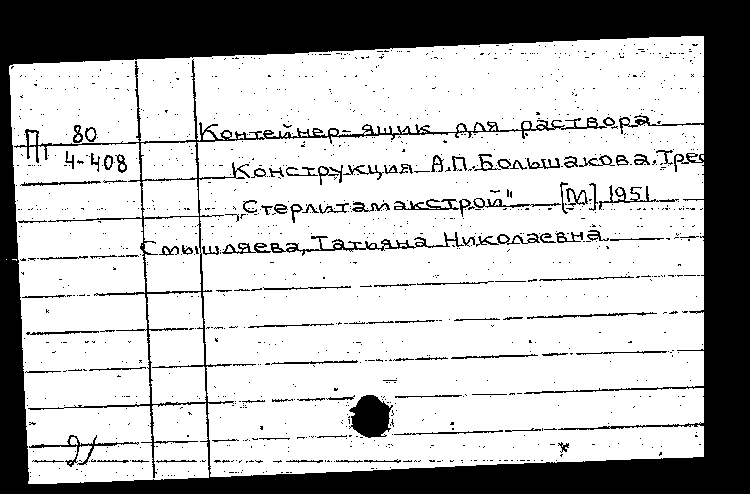 Пт 80
4-408
Контейнер-ящик для раствора.
Конструкция А.П.Большакова.Трес
„Стерлитамакстрой" [М],1951
Смышляева, Татьяна Николаевна
2/